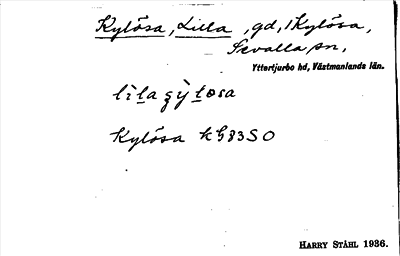 Kylösa, Lilla, gd, i Kylösa,
Sevalla sn,
Yttertjurbo hd, Västmanlands län.
Kylösa kG83SO
HARRY STÅHL 1936.